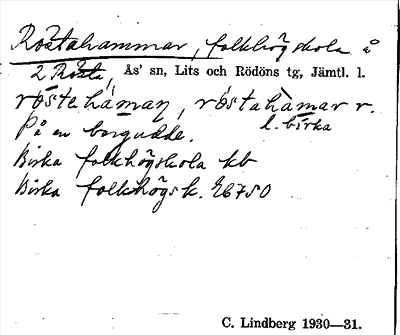 Röstahammar, folkhögskola å
2 Rösta, Ås' sn, Lits och Rödöns tg, Jämtl. l.
röstehāman, röstahàmar r.
l. birka
På en bergudde.
Birka folkhögskola kb
Birka folkhögsk. E6750
C. Lindberg 1930—31.